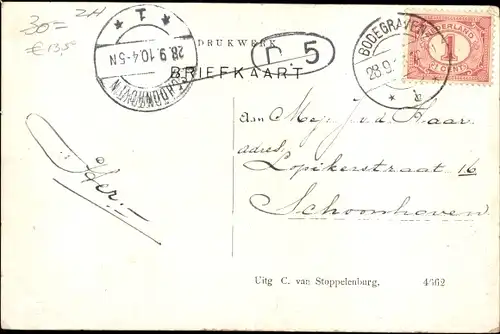 30=
ZH
€ 13,50
DRUKWERK
BRIEFKAART
5
SCHOONHOVEN
28.9.10.4-5N
1
BODEGRAVEN
28.9.
NEDERLAND
1
CENT
Aan Mej. J. v. d. Haar
adres
Lopikerstraat 16
Schoonhoven
Uitg C. van Stoppelenburg. 4662